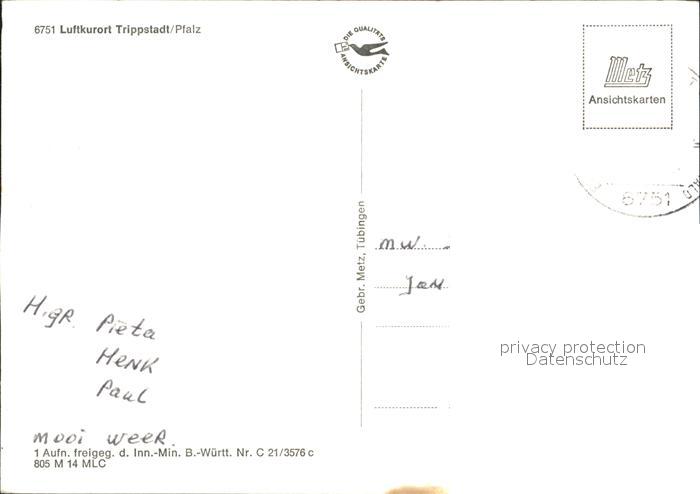 6751 Luftkurort Trippstadt/Pfalz
DIE QUALITÄTS
ANSICHTSKARTE
Metz
Ansichtskarten
6751
Gebr. Metz, Tübingen
MW.
Jan
privacy protection
Datenschutz
H.gR. Pieta
HENK
Paul
mooi weeR.
1 Aufn. freigeg. d. Inn.-Min. B.-Württ. Nr. C 21/3576 c
805 M 14 MLC